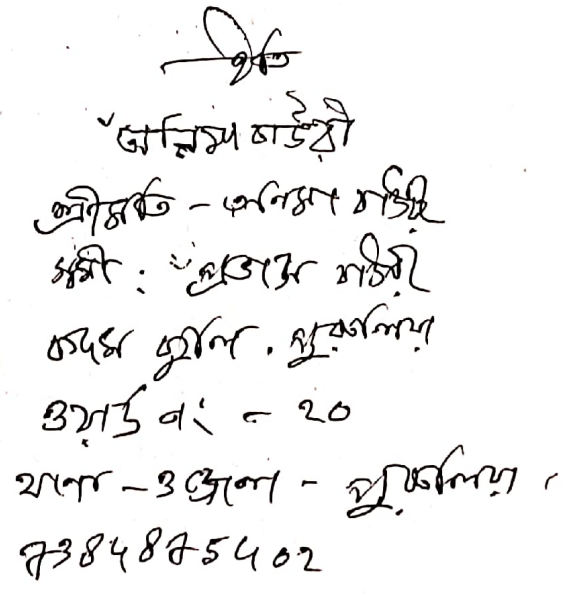 ইতি
অনিমা বাউরী
শ্রীমতি - অনিমা বাউরী
স্বামী : ৺প্রভাস বাউরী
কদম কুলি . পুরুলিয়া
ওয়ার্ড নং - ২০
থানা - ও জেলা - পুরুলিয়া ।
7384875402